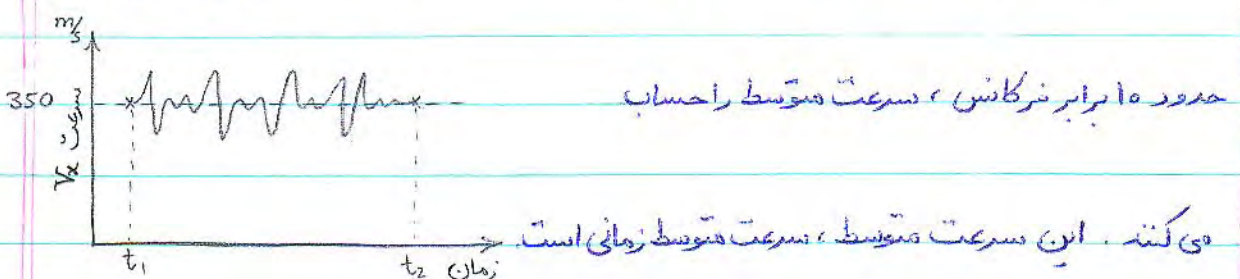 m/s
350
سرعت Vx
حدود ۱۵ برابر فرکانس، سرعت متوسط را حساب
می کنند. این سرعت متوسط، سرعت متوسط زمانی است.
t₁ t₂ زمان